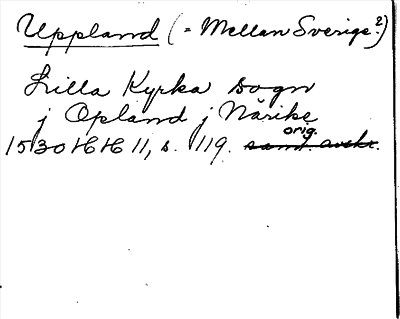 Uppland (= Mellan Sverige?)
Lilla Kyrka sogn
j Opland j Närike
orig.
15/30 HH 11, s. 119. samt. avskr.